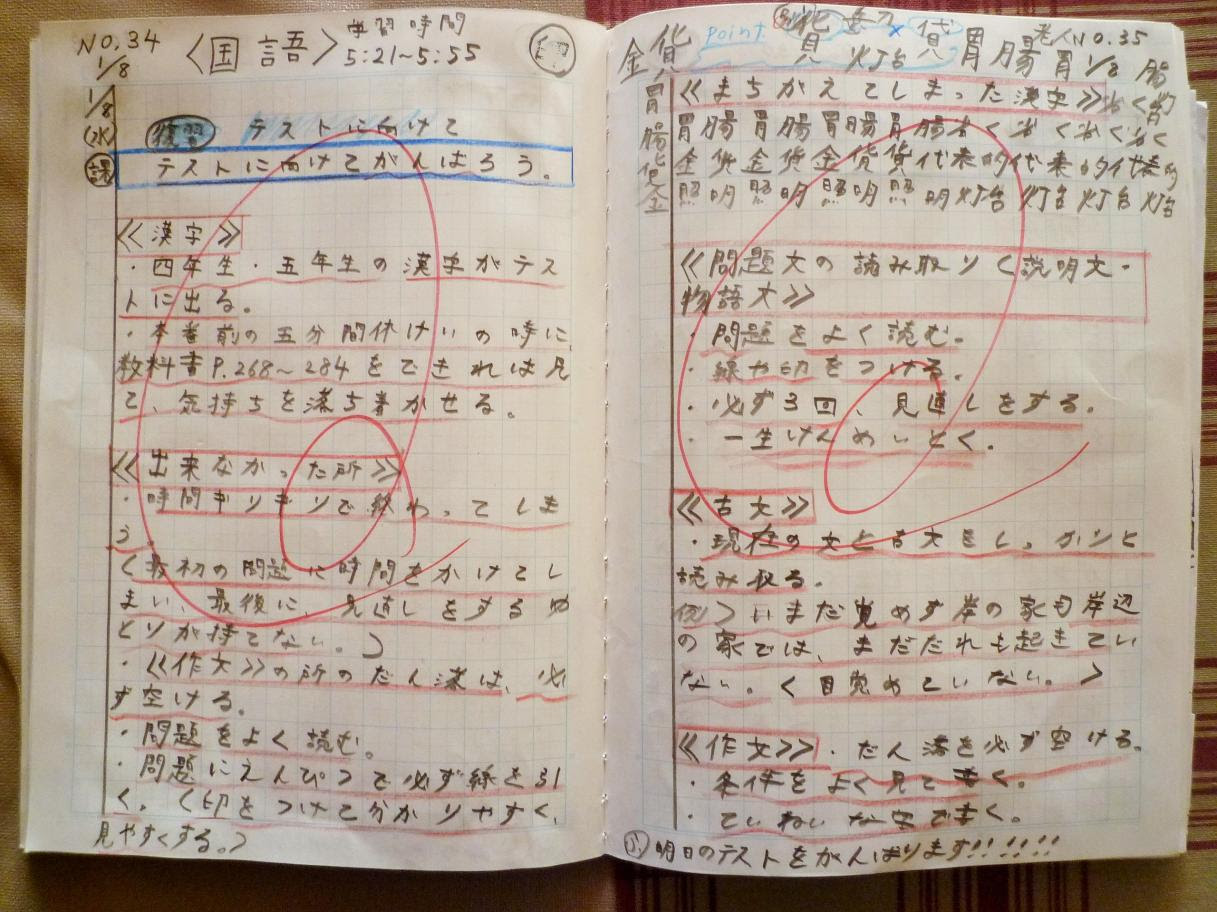 NO.34
1/8
〈国語〉
学習時間
5:21~5:55
1/8
(水)
課
復習 テストに向けて
テストに向けてがんばろう。
《漢字》
・四年生・五年生の漢字がテス
トに出る。
・本番前の五分間休けいの時に、
教科書P.268~284をできれば見
て、気持ちを落ち着かせる。
《出来なかった所》
・時間ギリギリで終わってしま
う。
〈最初の問題に時間をかけてし
まい、最後に、見直しをするゆ
とりが持てない。〉
・《作文》の所のだん落は、必
ず空ける。
・問題をよく読む。
・問題にえんぴつで必ず線を引
く。〈印をつけて分かりやすく、
見やすくする。〉
金貨
point
灯台
胃腸胃
老人
NO.35
1/8
胃腸貨金
《まちがえてしまった漢字》
胃腸胃腸胃腸胃腸省く省く省く省く
金貨金貨金貨貨代表的代表的代表的
照明照明照明照明灯台灯台灯台灯台
《問題文の読み取り〈説明文・
物語文》
・問題をよく読む。
・線や印をつける。
・必ず3回、見直しをする。
・一生けんめいとく。
《古文》
・現在の文と古文をしっかりと
読み取る。
例〉いまだ覚めず岸の家も岸辺
の家では、まだだれも起きてい
ない。〈目覚めていない。〉
《作文》・だん落を必ず空ける。
・条件をよく見て書く。
・ていねいな字で書く。
明日のテストをがんばります!!!!!!